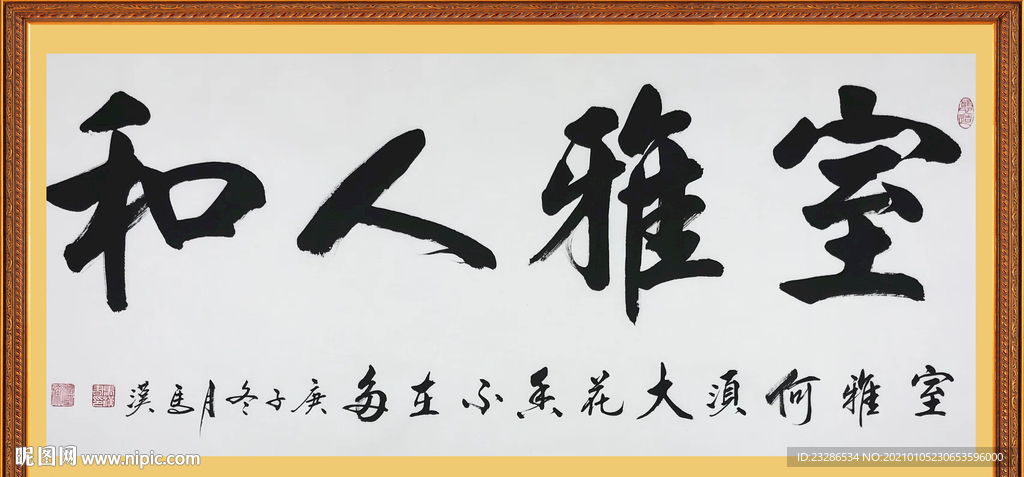 室雅人和
室雅何須大花香不在多庚子冬月馬漢
昵图网 www.nipic.com
ID:23286534 NO:20210105230653596000